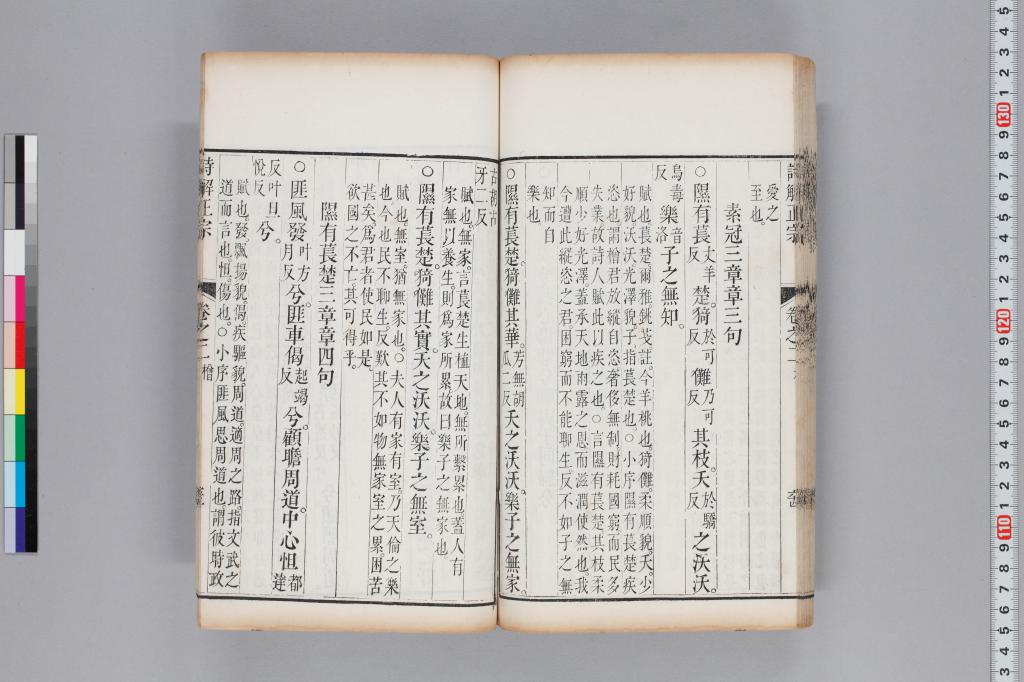 愛之
至也。
素冠三章章三句
○隰有萇丈羊反楚。猗於可反儺乃可反其枝夭於驕反之沃沃。
烏毒反樂音洛子之無知。
賦也萇楚爾雅銚芅註今羊桃也。猗儺柔順貌夭少
好貌沃沃光澤貌子指萇楚也○小序隰有萇楚疾
恣也謂檜君放縱自恣奢侈無制財耗國窮而民多
失業故詩人賦此以疾之也。○言隰有萇楚其枝柔
順少好光澤蓋承天地雨露之恩而滋潤使然也我
今遭此縱恣之君困窮而不能聊生反不如子之無
知而自
樂也。
○隰有萇楚。猗儺其華。芳無胡瓜二反夭之沃沃。樂子之無家。
古胡古
牙二反
賦也。無家。言萇楚生植天地。無所繫累也蓋人有
家無以養生。則爲家所累。故曰樂子之無家也。
○隰有萇楚。猗儺其實。夭之沃沃。樂子之無室。
賦也。無室猶無家也。○夫人有家有室。乃天倫之樂
也今也民不聊生。反歎其不如物無家室之累。困苦
甚矣。爲君者使民如是。
欲國之不亡。其可得乎。
隰有萇楚三章章四句
○匪風發叶方月反兮。匪車偈起竭反兮。顧瞻周道。中心怛都達
反叶旦悅反兮。
賦也。發。飄揚貌。偈疾驅貌。周道。適周之路。指文武之
道而言也。怛。傷也。○小序匪風思周道也。謂彼時政
詩解正宗
卷之二
檜